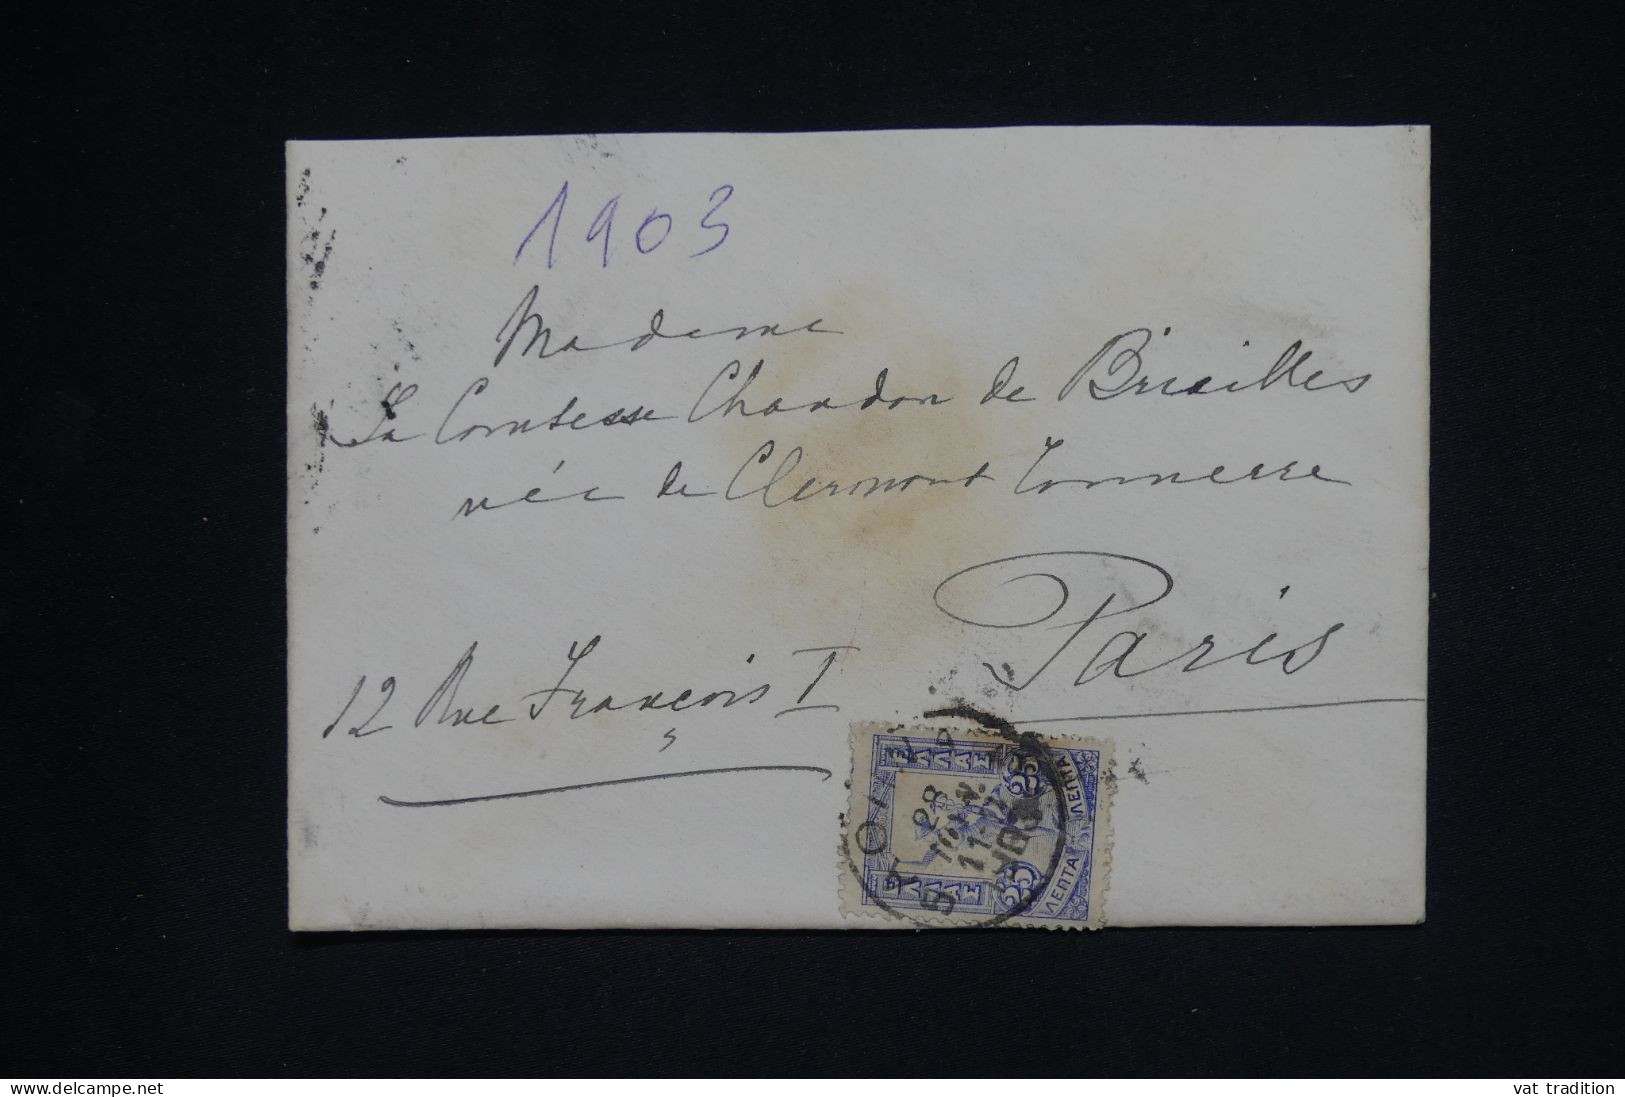 1903
Madame
La Comtesse Chandon de Briailles
née de Clermont Tonnerre
Paris
12 Rue François I
ΕΛΛΑΣ
25
ΛΕΠΤΑ
ΕΛΛΑΣ
25
ΛΕΠΤΑ
28
ΙΟΥΝ.
11-12
delcampe.net
vat_tradition